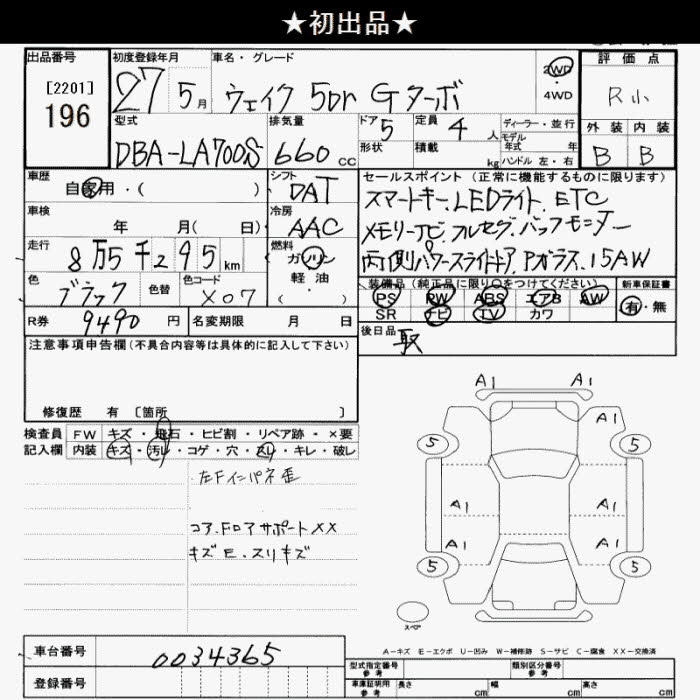 ★初出品★
出品番号 初度登録年月 車名・グレード 評価点
[2201] 27 5月 ウェイク 5Dr Gターボ 2WD ・ 4WD R小
196
型式 排気量 ドア 定員 ディーラー・並行 外装 内装
モデル年式 年
DBA-LA700S 660cc 5 4人 B B
形状 積載 kg ハンドル 左・右
車歴 シフト セールスポイント（正常に機能するものに限ります）
自家用・（ ） DAT スマートキー、LEDライト、ETC
車検 冷房 メモリーナビ、フルセグ、バックモニター
年 月（ 日） AAC 両側パワースライドドア、Pガラス、15AW
走行 燃料
8万5千295km ガソリン・軽油（・）
色 色替 色コード 装備品（純正品に限り○をつけてください） 新車保証書
ブラック X07 PS PW ABS エアB AW 有・無
SR ナビ TV カワ
R券 9490円 名変期限 月 日 後日品 取
注意事項申告欄（不具合内容等は具体的に記入して下さい）
修復歴 有 〔箇所 〕
検査員 FW キズ・飛石・ヒビ割・リペア跡・×要
記入欄 内装 キズ・汚レ・コゲ・穴・スレ・キレ・破レ
左Fインパネ歪
コア、Fロアサポート××
キズE、スリキズ
A1 A1
A1
5 5
A1 A1
A1 A1
5 5
スペア
A-キズ E-エクボ U-凹み W-補修跡 S-サビ C-腐食 XX-交換済
車台番号 0034365
型式指定番号 参考 類別区分番号 参考
登録番号
車庫証明用 参考 長さ cm 幅 cm 高さ cm